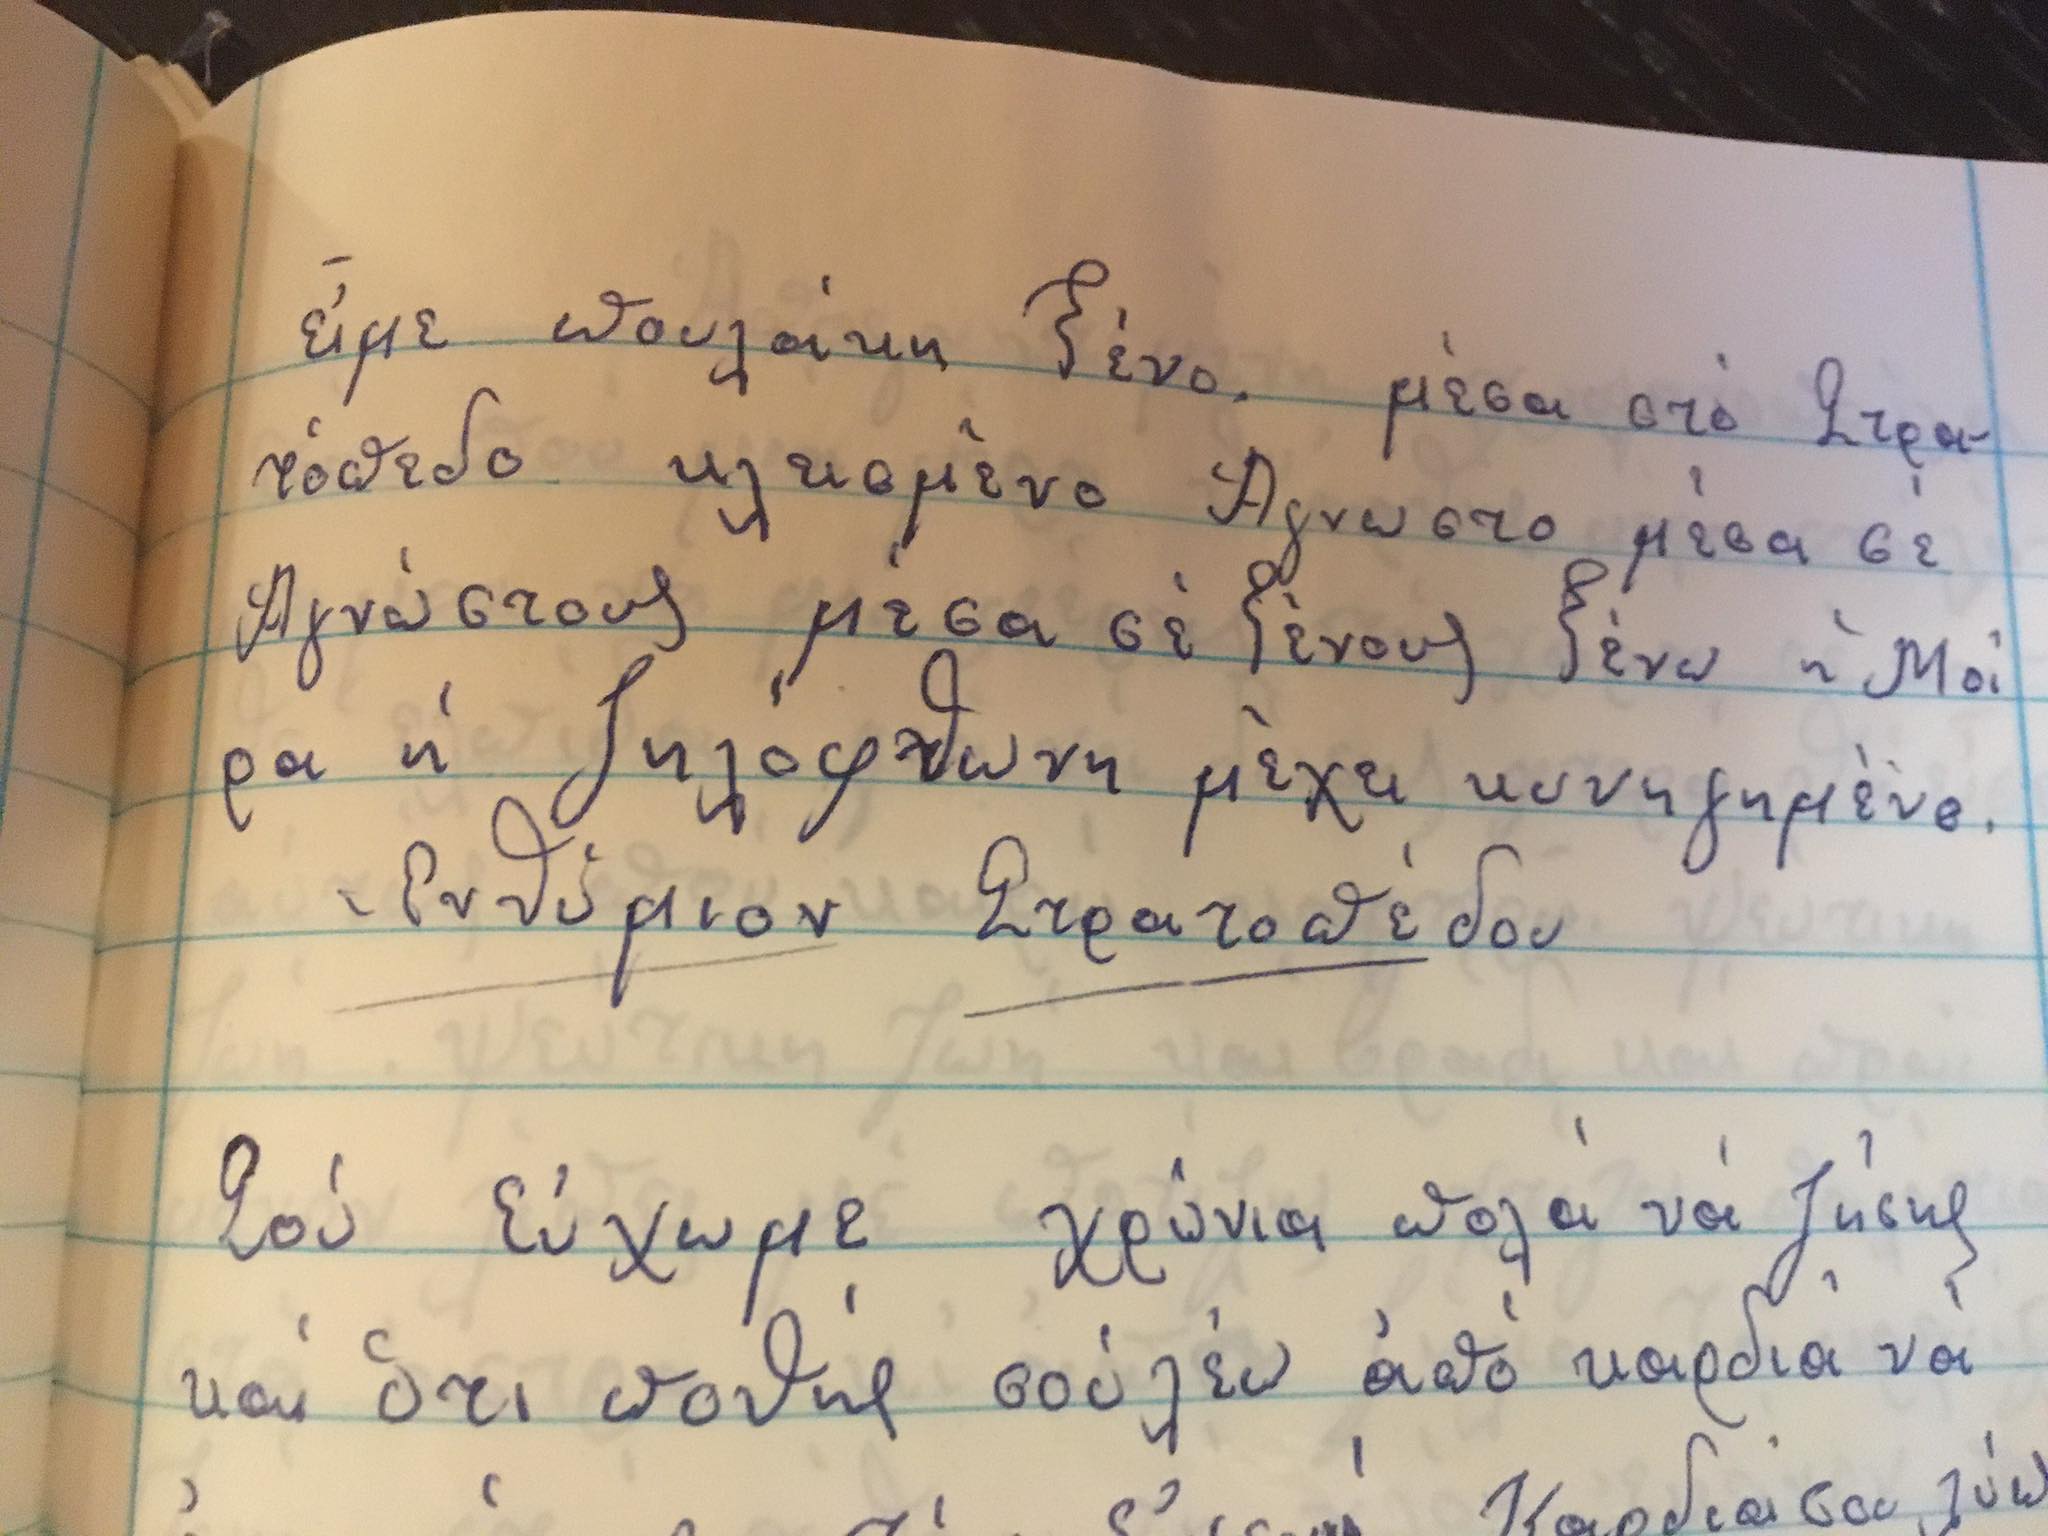 εἶμε πουλάκη ξένο. μέσα στό Στρα-
τόπεδο κλεισμένο Ἄγνωστο μέσα σέ
Ἀγνώστους μέσα σέ ξένους ξένω ἡ Μοί
ρα ἡ ζηλόφθωνη μέχει κυνηγημένο.
- Ενθύμιον Στρατοπέδου
Σού εὐχωμε χρόνια πολά νά ζήσης
καί ὅτι ποθής σού λέω ἀπό καρδιά νά
Καρδιά σου